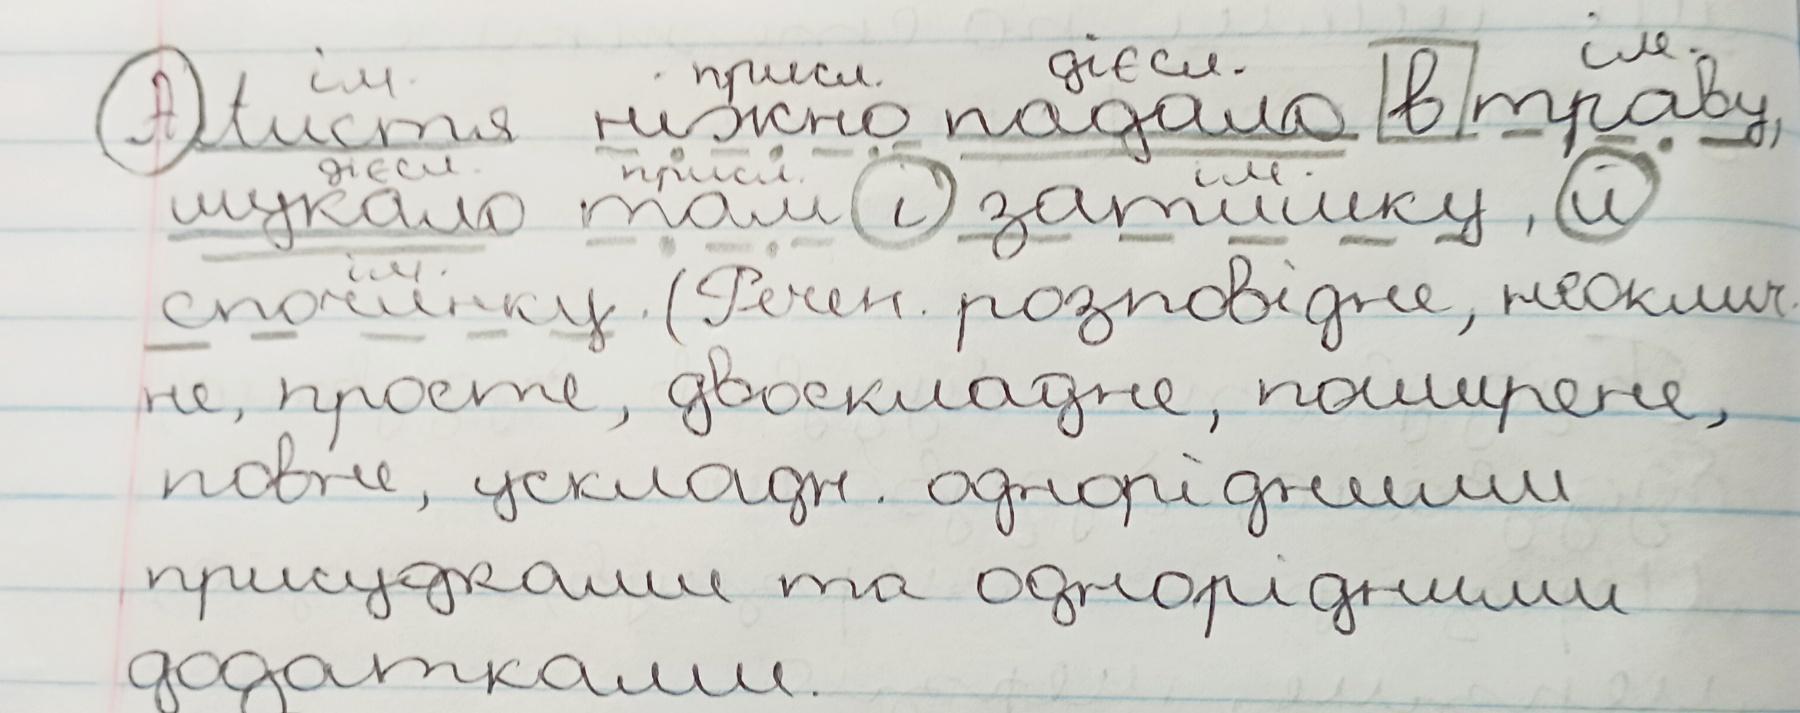 ім. присл. дієсл. ім.
А листя ніжно падало в траву,
дієсл. присл. ім.
шукало там і затишку, й
ім.
спочинку. (Речен. розповідне, неоклич.
не, просте, двоскладне, поширене,
повне, ускладн. однорідними
присудками та однорідними
додатками.